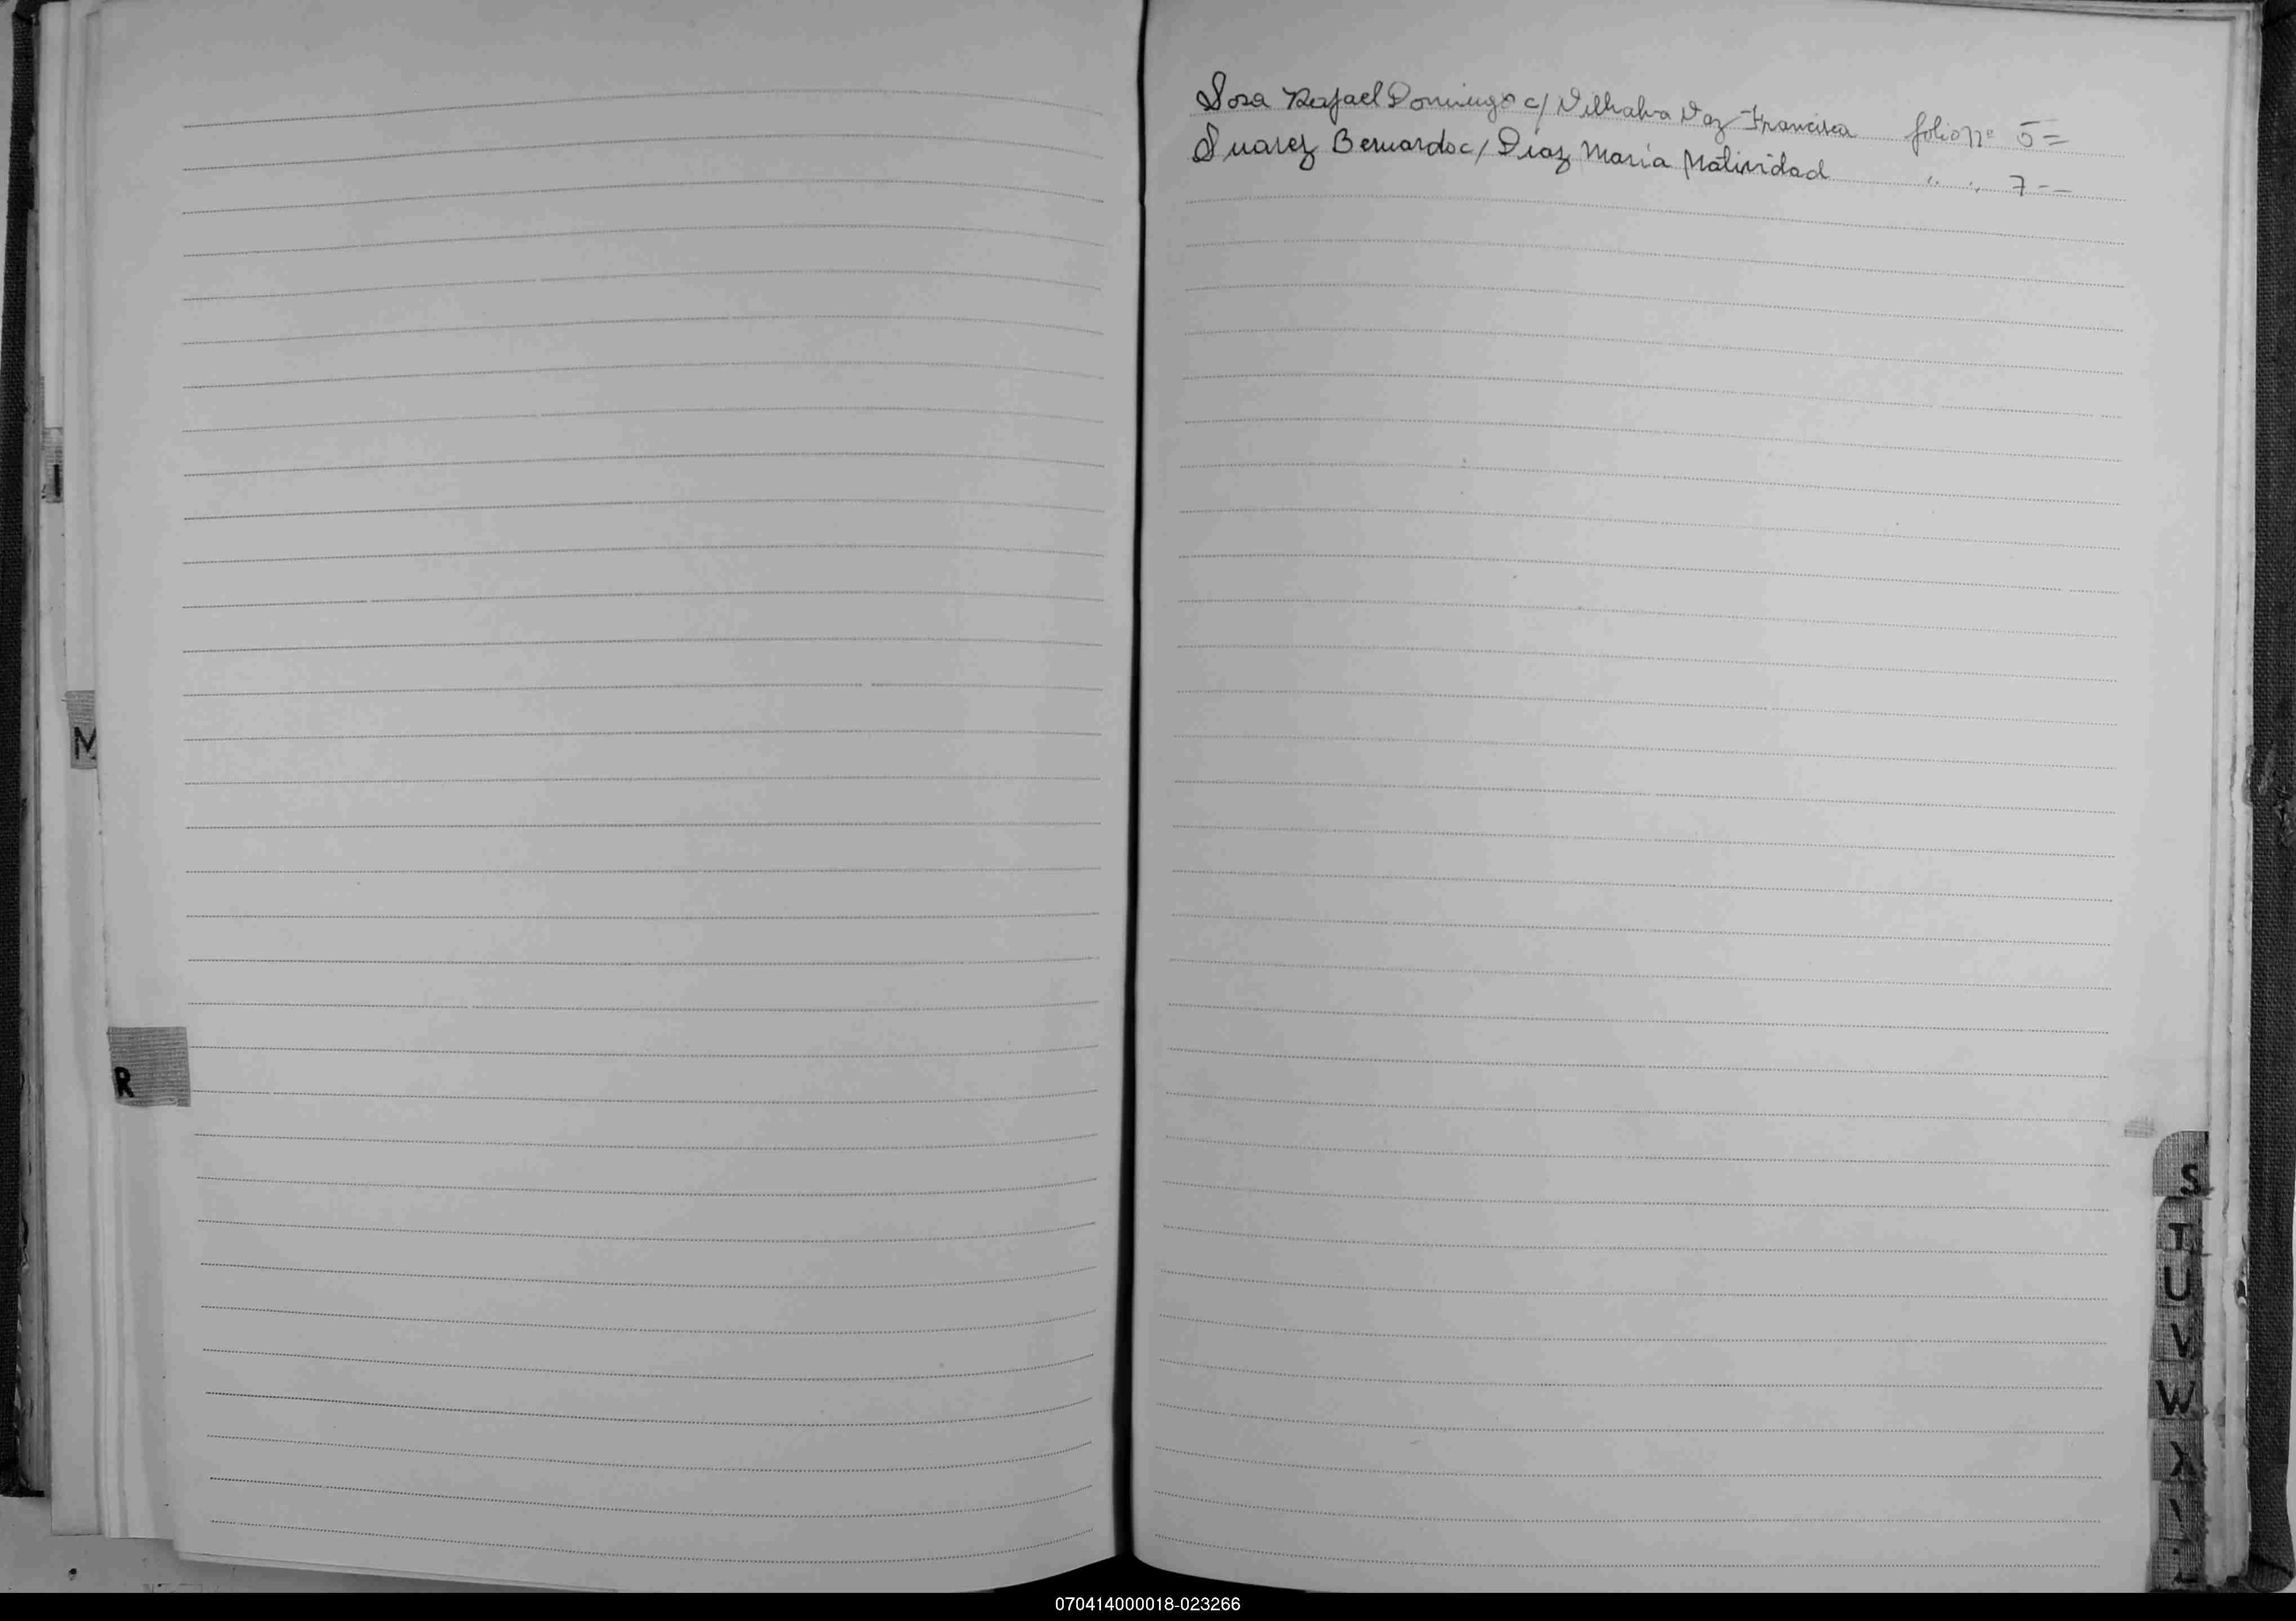 Sosa Rafael Domingo c/ Vilhalva Vaz Francisca folio nº 5=
Suarez Bernardo c/ Díaz María Natividad " " 7--
I
M
R
S
T
U
V
W
X
070414000018-023266